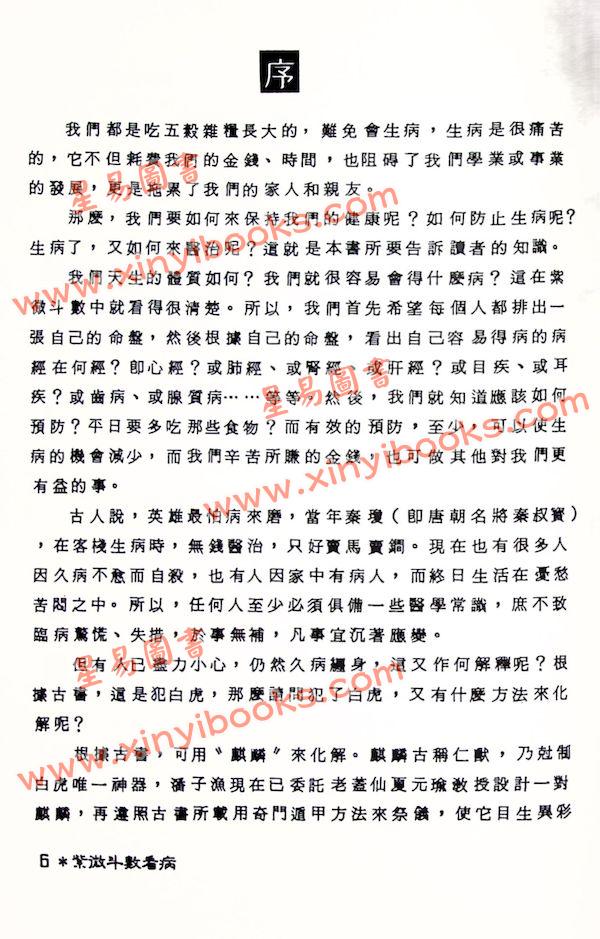 序
我們都是吃五穀雜糧長大的，難免會生病，生病是很痛苦
的，它不但耗費我們的金錢、時間，也阻碍了我們學業或事業
的發展，更是拖累了我們的家人和親友。
那麼，我們要如何來保持我們的健康呢？如何防止生病呢？
生病了，又如何來醫治呢？這就是本書所要告訴讀者的知識。
我們天生的體質如何？我們就很容易會得什麼病？這在紫
微斗數中就看得很清楚。所以，我們首先希望每個人都排出一
張自己的命盤，然後根據自己的命盤，看出自己容易得病的病
經在何經？即心經？或肺經、或腎經、或肝經？或目疾、或耳
疾？或齒病、或腺質病……等等，然後，我們就知道應該如何
預防？平日要多吃那些食物？而有效的預防，至少，可以使生
病的機會減少，而我們辛苦所賺的金錢，也可做其他對我們更
有益的事。
古人說，英雄最怕病來磨，當年秦瓊（即唐朝名將秦叔寶）
，在客棧生病時，無錢醫治，只好賣馬賣鐧。現在也有很多人
因久病不愈而自殺，也有人因家中有病人，而終日生活在憂愁
苦悶之中。所以，任何人至少必須俱備一些醫學常識，庶不致
臨病驚慌、失措，於事無補，凡事宜沉著應變。
但有人已盡力小心，仍然久病纏身，這又作何解釋呢？根
據古書，這是犯白虎，那麼請問犯了白虎，又有什麼方法來化
解呢？
根據古書，可用〝麒麟〞來化解。麒麟古稱仁獸，乃尅制
白虎唯一神器，潘子漁現在已委託老蓋仙夏元瑜教授設計一對
麒麟，再遵照古書所載用奇門遁甲方法來祭儀，使它目生異彩
6＊紫微斗數看病
星易圖書
www.xinyibooks.com
星易圖書
www.xinyibooks.com
星易圖書
www.xinyibooks.com